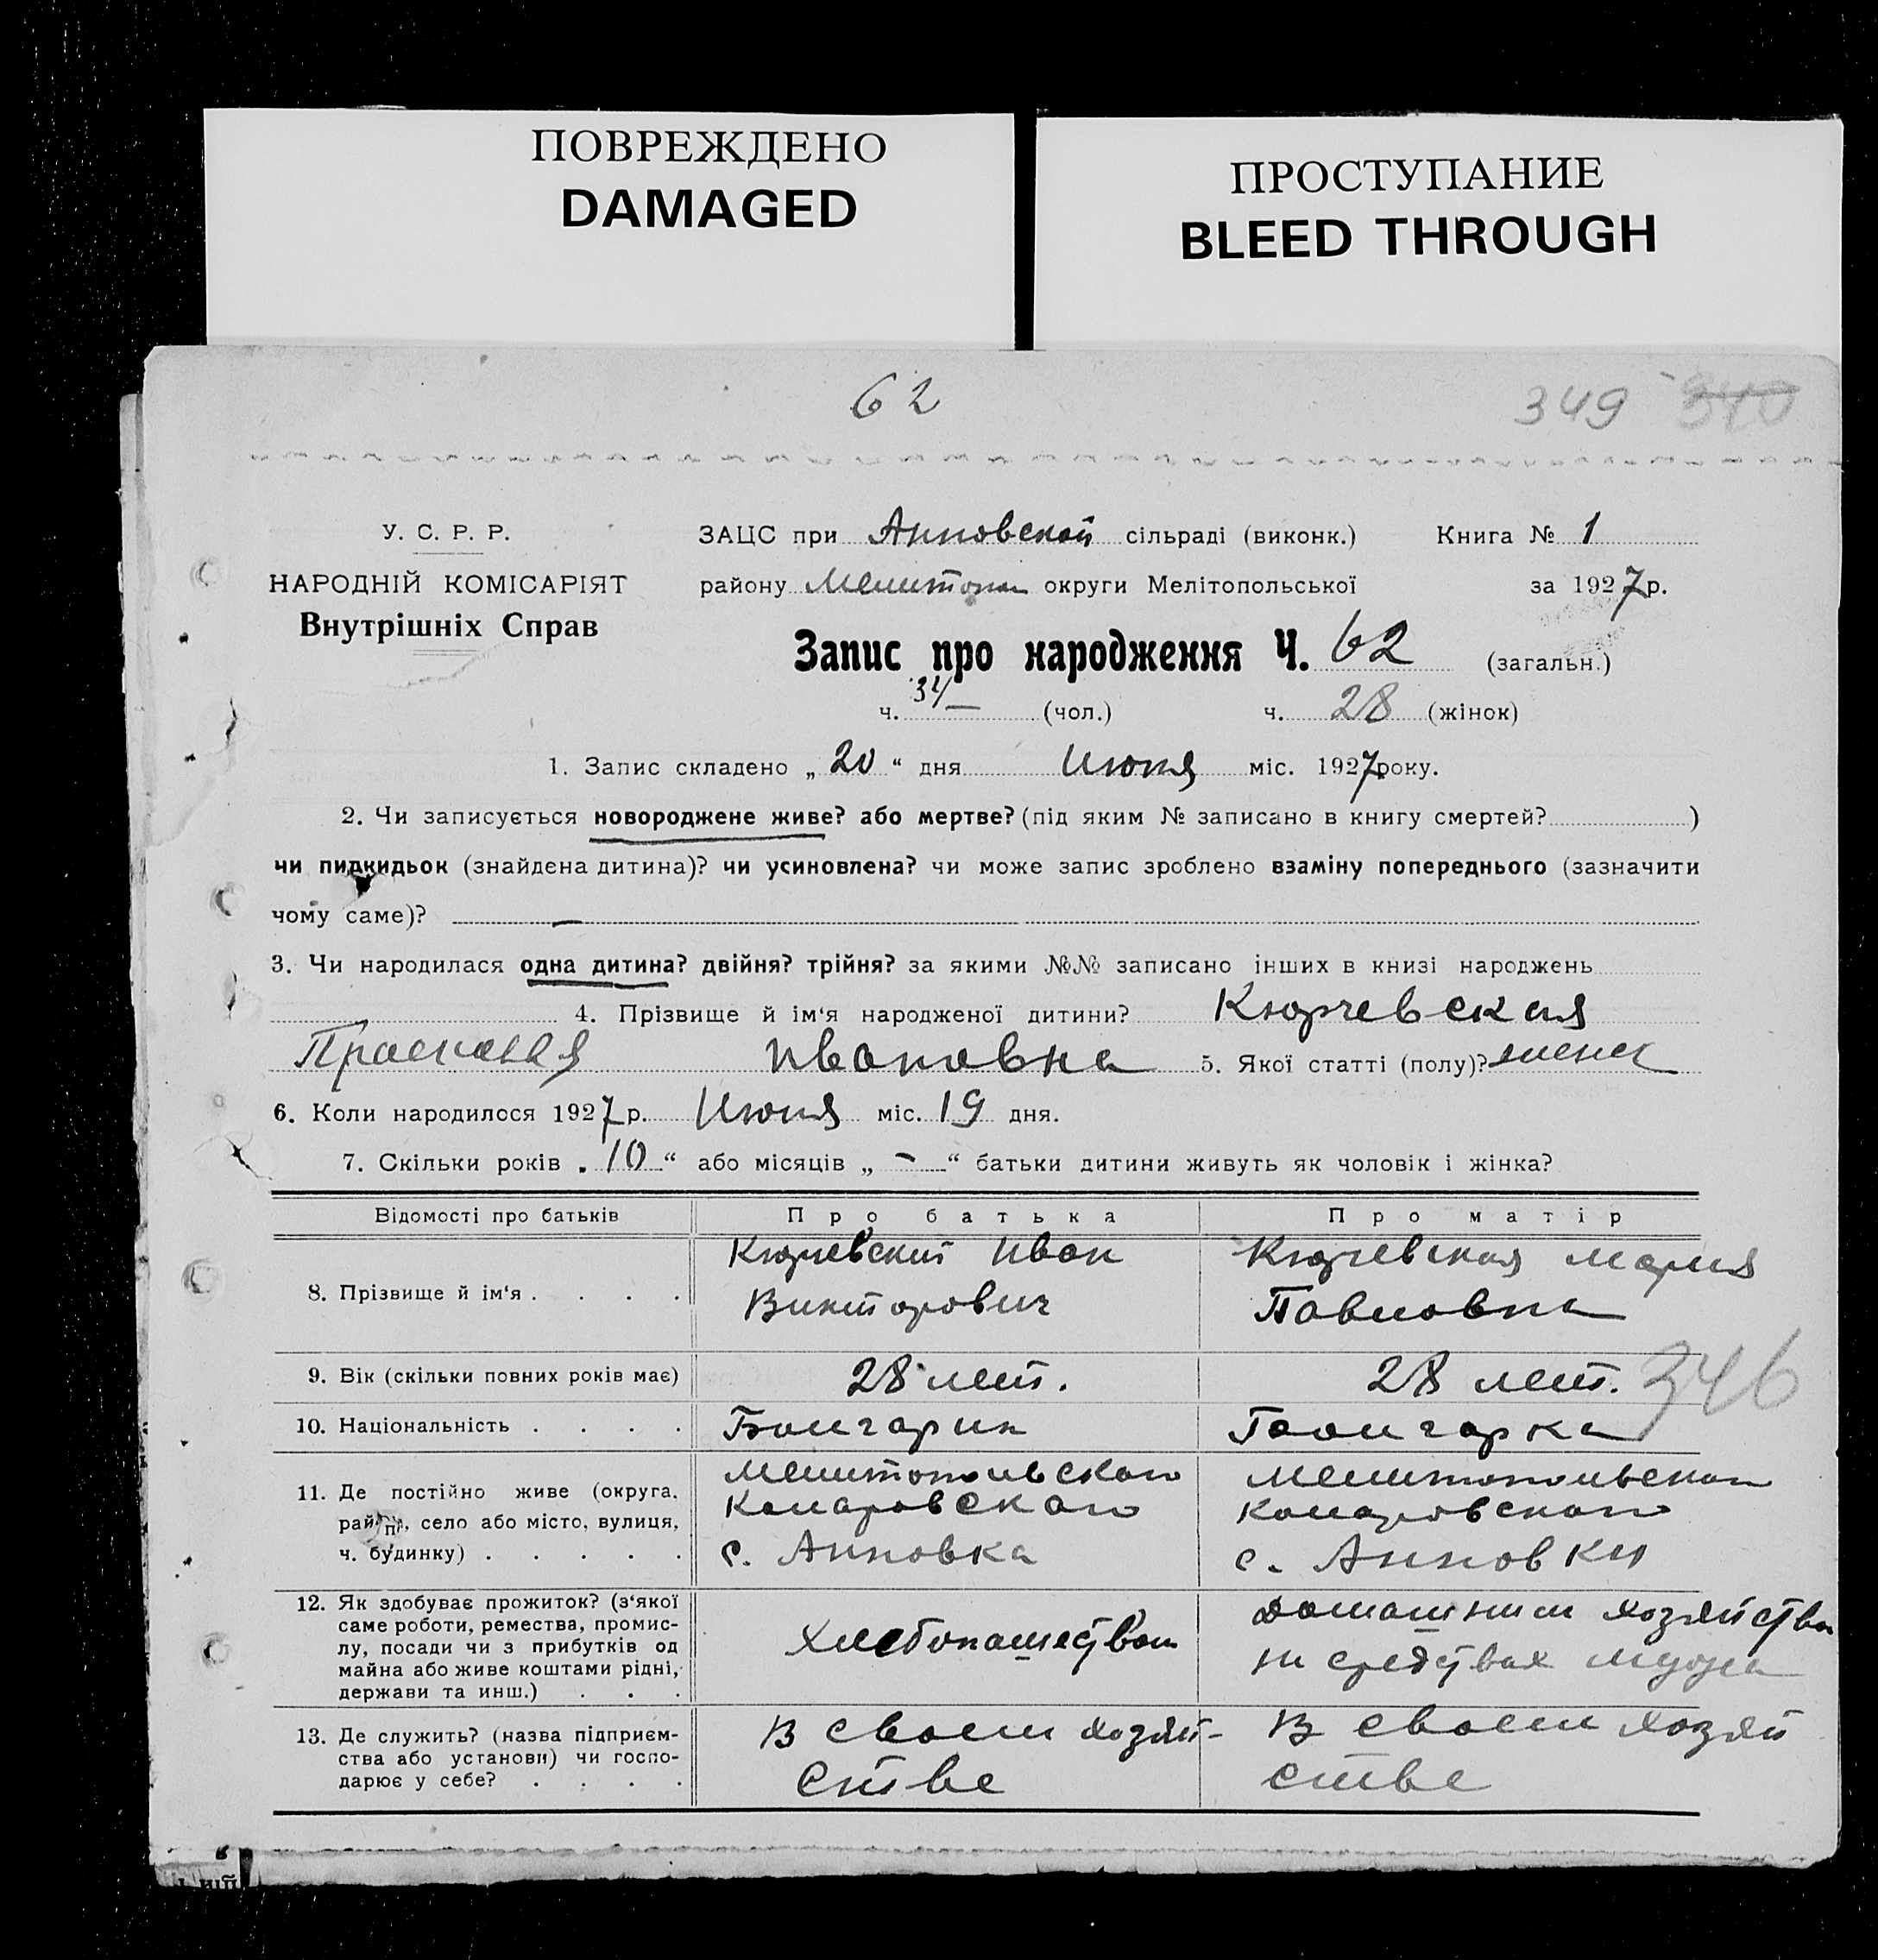 ПОВРЕЖДЕНО
DAMAGED
ПРОСТУПАНИЕ
BLEED THROUGH
62
349 340
У. С. Р. Р.
НАРОДНІЙ КОМІСАРІЯТ
Внутрішніх Справ
ЗАЦС при Анновской сільраді (виконк.) Книга № 1
району Мелитопол округи Мелітопольської за 1927 р.
Запис про народження Ч. 62 (загальн.)
ч. 34/— (чол.) ч. 28 (жінок)
1. Запис складено „ 20 “ дня Июля міс. 1927 року.
2. Чи записується новороджене живе? або мертве? (під яким № записано в книгу смертей? )
чи пидкидьок (знайдена дитина)? чи усиновлена? чи може запис зроблено взаміну попереднього (зазначити
чому саме)? —
3. Чи народилася одна дитина? двійня? трійня? за якими №№ записано інших в книзі народжень
4. Прізвище й ім‘я народженої дитини? Кюрчевская
Прасковия Ивановна 5. Якої статті (полу)? женск
6. Коли народилося 1927 р. Июля міс. 19 дня.
7. Скільки років „ 10 “ або місяців „ — “ батьки дитини живуть як чоловік і жінка?
Відомості про батьків Про батька Про матір
8. Прізвище й ім‘я . . . .
Кюрчевский Иван
Викторович
Кюрчевская Мария
Павловна
9. Вік (скільки повних років має) 28 лет. 28 лет. 346
10. Національність . . . . Болгарин Болгарка
11. Де постійно живе (округа,
район, село або місто, вулиця,
ч. будинку) . . . . .
Мелитопольского
Комаровского
с. Анновка
Мелитопольского
Комаровского
с. Анновки
12. Як здобуває прожиток? (з‘якої
саме роботи, ремества, промис-
лу, посади чи з прибутків од
майна або живе коштами рідні,
держави та инш.) . . .
Хлебопашеством
Домашним хозяйство
на средствах мужа
13. Де служить? (назва підприєм-
ства або установи) чи госпо-
дарює у себе? . . . .
В своем хозяй-
стве
В своем хозяй
стве